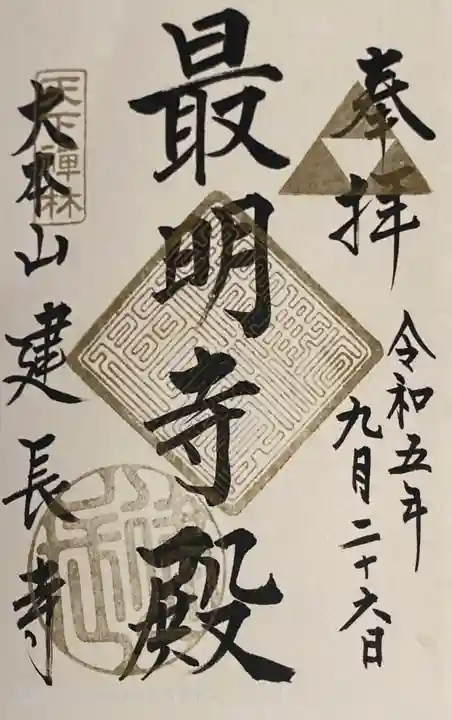 奉拝
令和五年
九月二十六日
最明寺殿
天下禅林
大本山建長寺